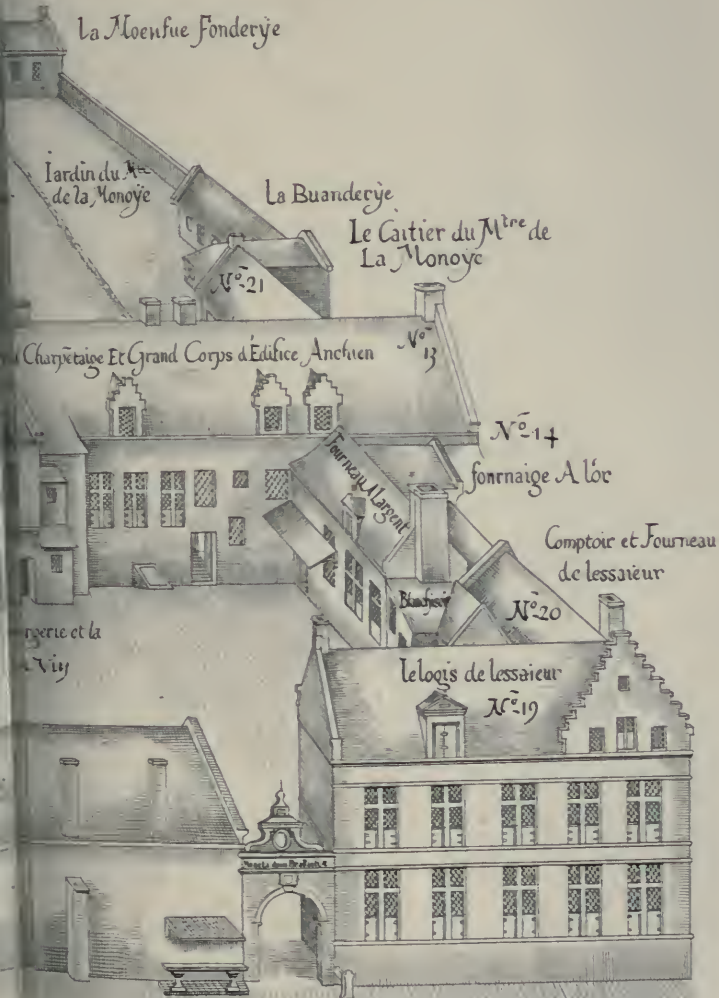 La Moenfue Fonderÿe
Iardin du Mtre
de la Monoÿe
La Buanderÿe
Le Cartier du Mtre de
La Monoÿe
No-21
Charpẽtaige Et Grand Corps d'Edifice Anchien
No 13
No-14
fournaige A lor
Fourneau A Largent
Comptoir et Fourneau
de lessaieur
No-20
rgerie et la
le logis de lessaieur
No-19